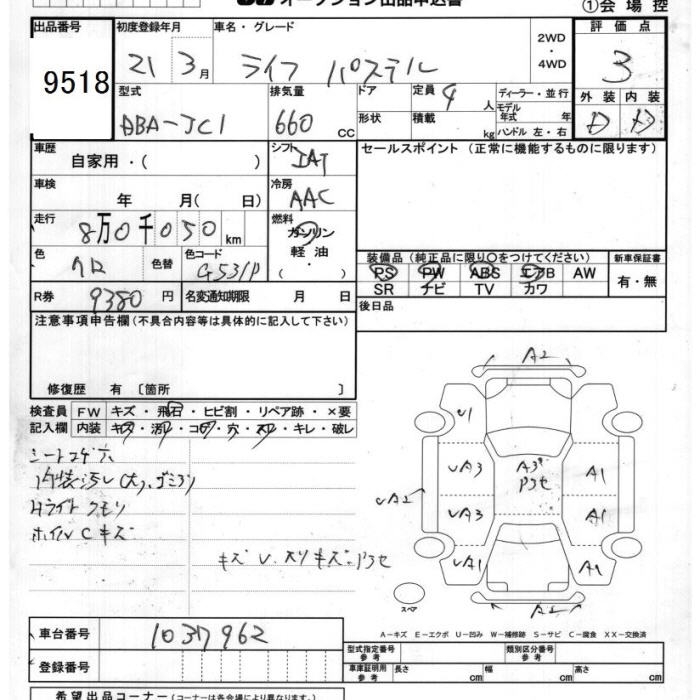 オークション出品申込書
①会場控
出品番号
9518
初度登録年月
21 3月
車名・グレード
ライフ パステル
2WD
・
4WD
評価点
3
外装 内装
D D
型式
DBA-JC1
排気量
660 cc
ドア
形状
定員 4 人
積載 kg
ディーラー・並行
モデル
年式 年
ハンドル 左・右
車歴
自家用・( )
シフト
IAT
セールスポイント (正常に機能するものに限ります)
車検
年 月( 日)
冷房
AAC
走行
8万0千050 km
燃料
ガソリン
軽油
・( )
色
クロ
色替
色コード
装備品 (純正品に限り○をつけてください)
新車保証書
PS PW ABS エアB AW
SR ナビ TV カワ
有・無
R券 9380 円
名変通知期限 月 日
後日品
注意事項申告欄(不具合内容等は具体的に記入して下さい)
修復歴 有 〔箇所 〕
検査員
記入欄
FW キズ・飛石・ヒビ割・リペア跡・×要
内装 キズ・汚レ・コゲ・穴・スレ・キレ・破レ
シートコゲ穴
内装汚レ(大)、
Hライトクモリ
ホイルCキズ
A2
U1
UA3
A3
A1
UA2
UA3
A1
UA1
A1
A2
スペア
A-キズ E-エクボ U-凹み W-補修跡 S-サビ C-腐食 XX-交換済
車台番号
1037962
登録番号
型式指定番号
参考
類別区分番号
参考
車庫証明用
参考
長さ cm
幅 cm
高さ cm
希望出品コーナー(コーナーは各会場により異なります。)